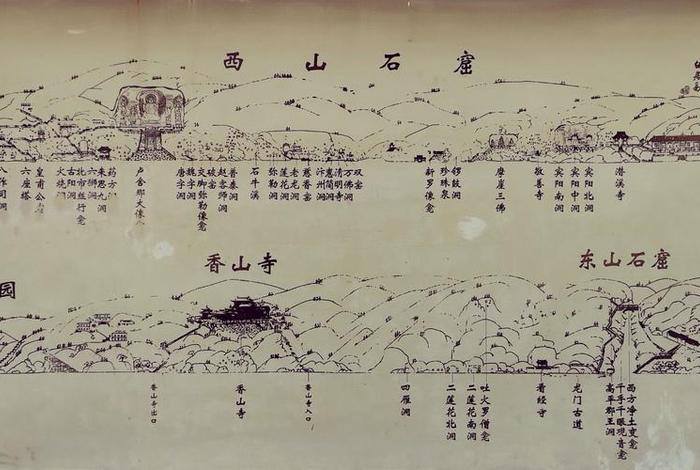 西山石窟
八作司洞
六座塔
皇甫公
火烧洞
古阳洞
北市丝行龛
六狮洞
来思九洞
药方洞
卢舍那大像龛
唐字洞
魏字洞
交脚弥勒像龛
破窑
赵客师洞
普泰洞
石牛溪
弥勒洞
莲花洞
老龙洞
慈香窑
汴州洞
惠简洞
清明寺
万佛洞
双窑
新罗像龛
珍珠泉
锣鼓洞
摩崖三佛
敬善寺
宾阳南洞
宾阳中洞
宾阳北洞
潜溪寺
园
香山寺
东山石窟
香山寺出口
香山寺
香山寺入口
四雁洞
二莲花北洞
二莲花南洞
吐火罗僧龛
看经寺
龙门古道
高平郡王洞
千手千眼观音龛
西方净土变龛